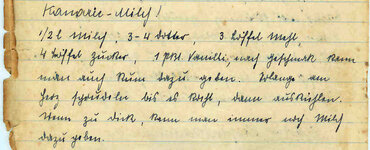 Kanarie-Milch!
1/2 l Milch, 3-4 Dotter, 3 Löffel Mehl,
4 Löffel Zucker, 1 pkl. Vanille, nach geschmak kann
man auch Rum dazu geben. Solange am
herz sprudeln bis es kocht, dann auskühlen.
Wenn zu dick, kann man immer noch Milch
dazu geben.